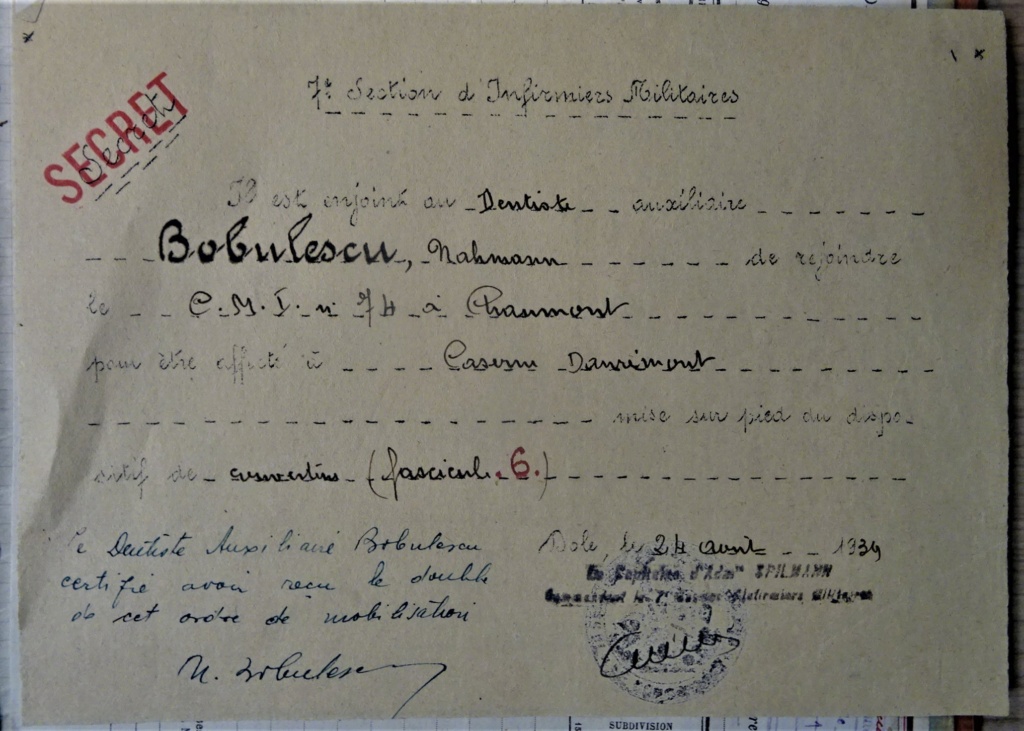 SECRET
Secret
7e Section d'Infirmiers Militaires
Il est enjoint au Dentiste auxiliaire
Bobulescu, Nahmann de rejoindre
le C.M.I. n° 74 à Chaumont
pour être affecté à Caserne Damrémont
mise sur pied du dispo-
sitif de couverture (fascicule 6.)
Le Dentiste Auxiliaire Bobulescu
certifie avoir reçu le double
de cet ordre de mobilisation
N. Bobulescu
Dole, le 24 avril 1939
Le Capitaine d'Admon SPILMANN
Commandant la 7e Section d'Infirmiers Militaires
SUBDIVISION